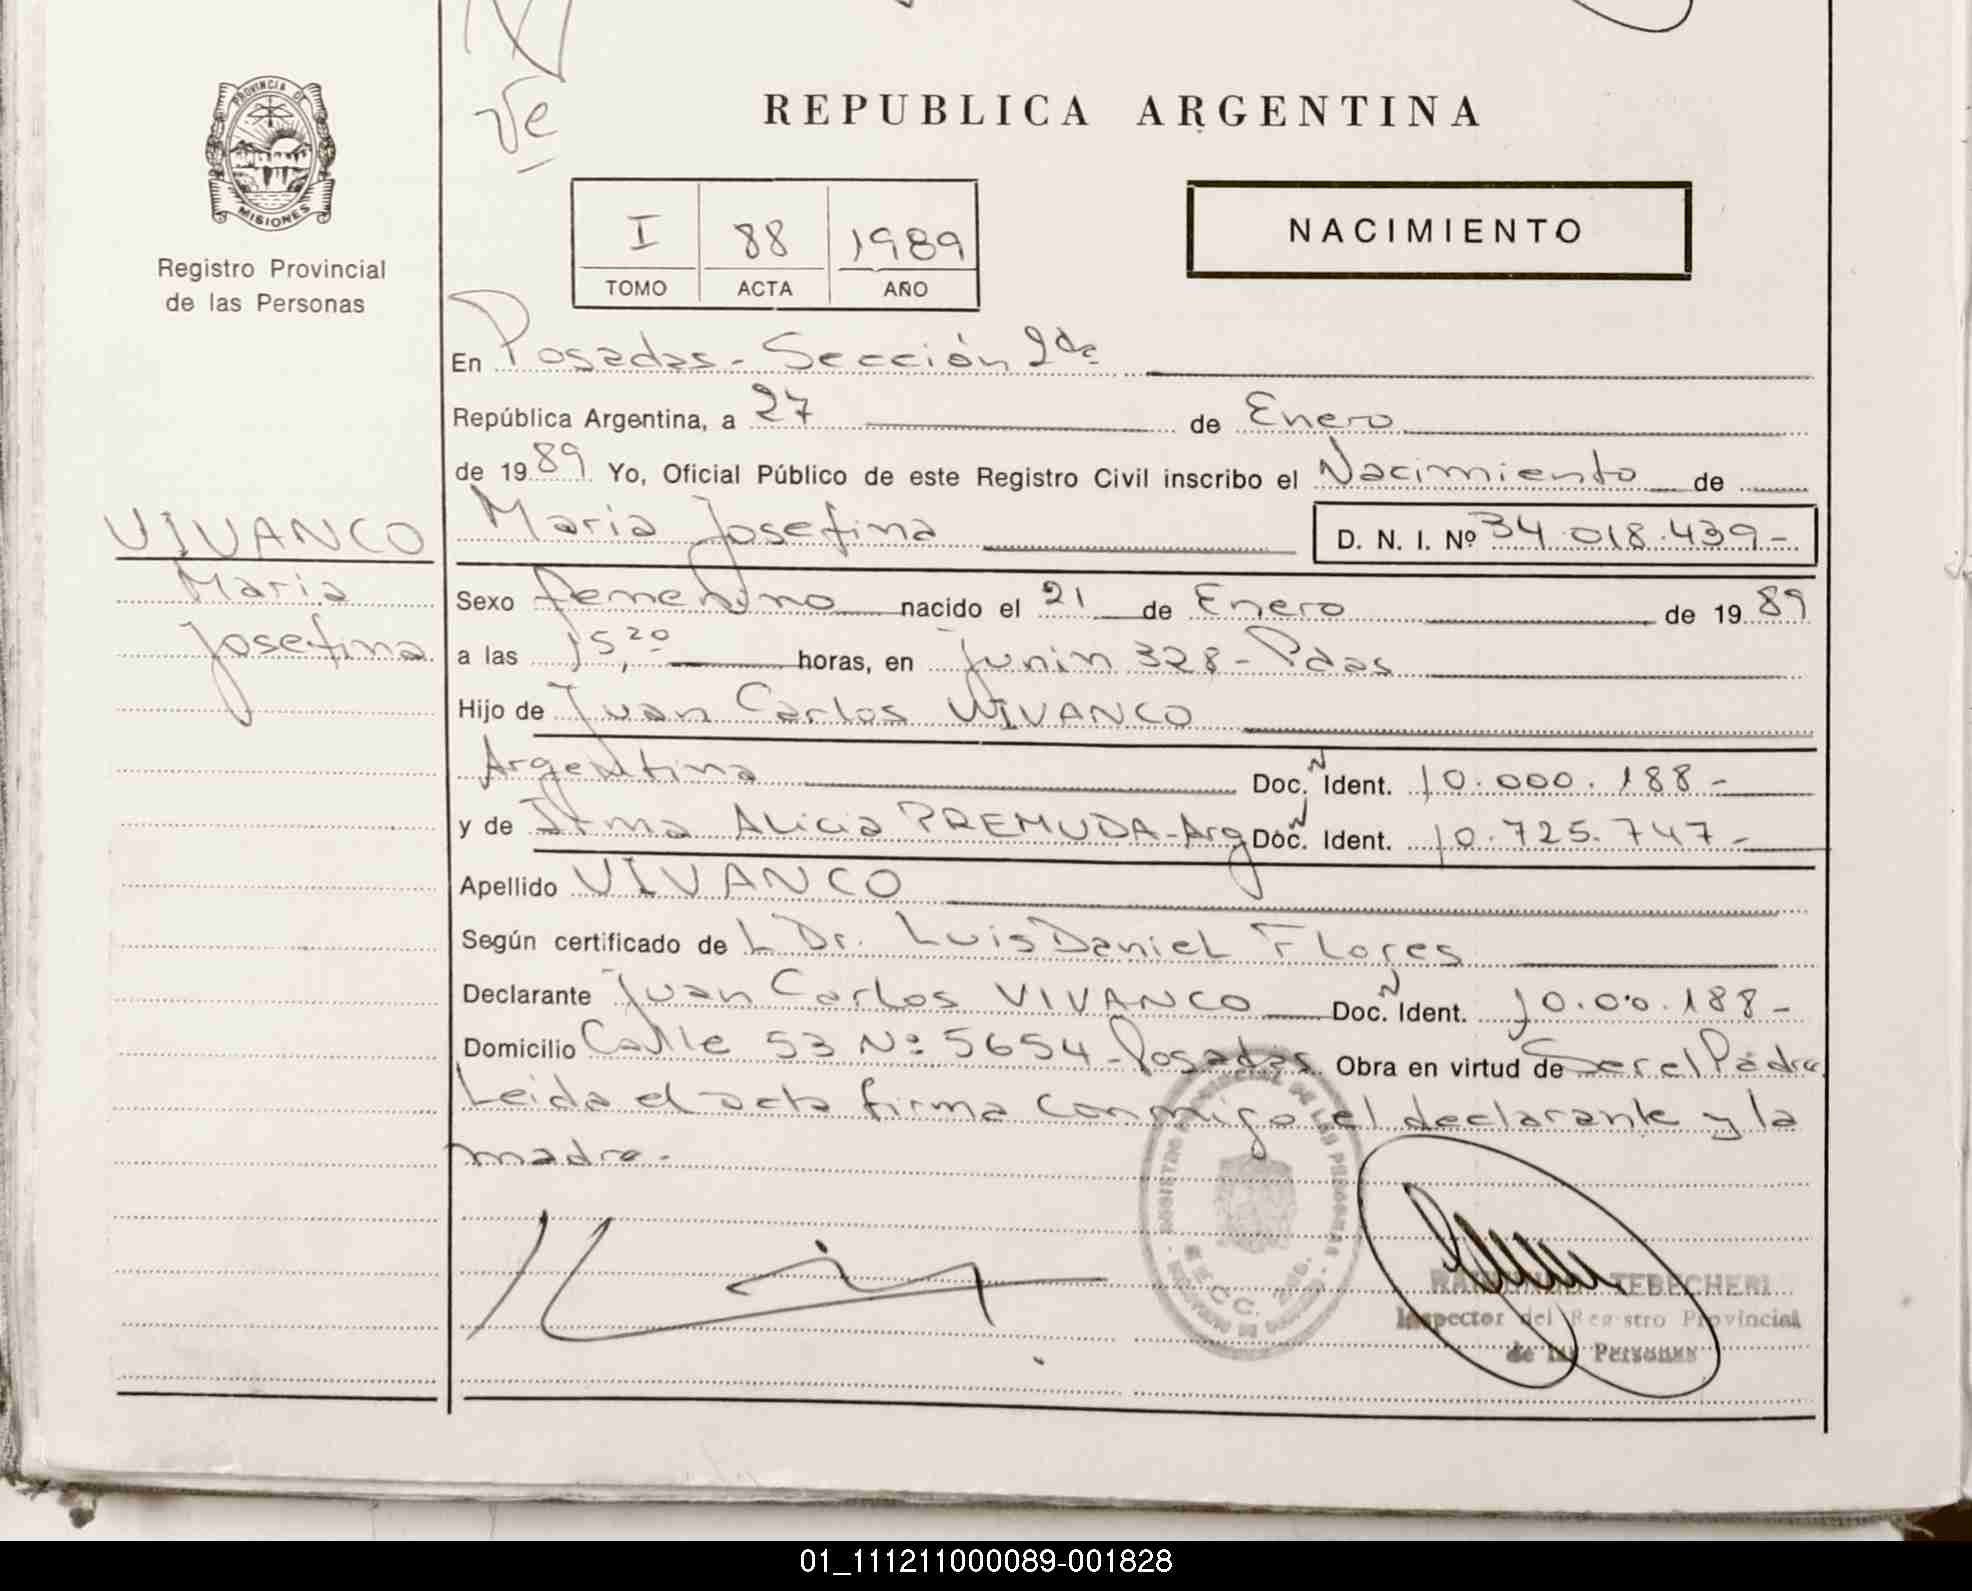 Ve
PROVINCIA DE
MISIONES
Registro Provincial
de las Personas
REPUBLICA ARGENTINA
NACIMIENTO
I 88 1989
TOMO ACTA AÑO
En Posadas - Sección 2da
República Argentina, a 27 de Enero
de 1989 Yo, Oficial Público de este Registro Civil inscribo el Nacimiento de
VIVANCO
Maria
Josefina
Maria Josefina D. N. I. Nº 34.018.439-
Sexo femenino nacido el 21 de Enero de 1989
a las 15,20 horas, en Junin 328 - Pdas
Hijo de Juan Carlos VIVANCO
Argentina Doc. N Ident. 10.000.188-
y de Irma Alicia PREMUDA - Arg Doc. N Ident. 10.725.747-
Apellido VIVANCO
Según certificado de L Dr. Luis Daniel Flores
Declarante Juan Carlos VIVANCO Doc. N Ident. 10.00.188-
Domicilio Calle 53 Nº 5654 - Posadas Obra en virtud de Ser el Padre
Leida el acta firma conmigo el declarante y la
madre.-
TEBECHERI
Inspector del Registro Provincial
de las Personas
01_111211000089-001828